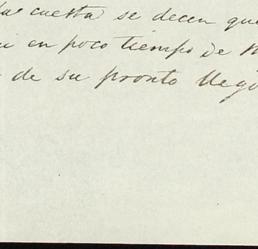 la cuesta se decen que
en poco tiempo de
de su pronto llego